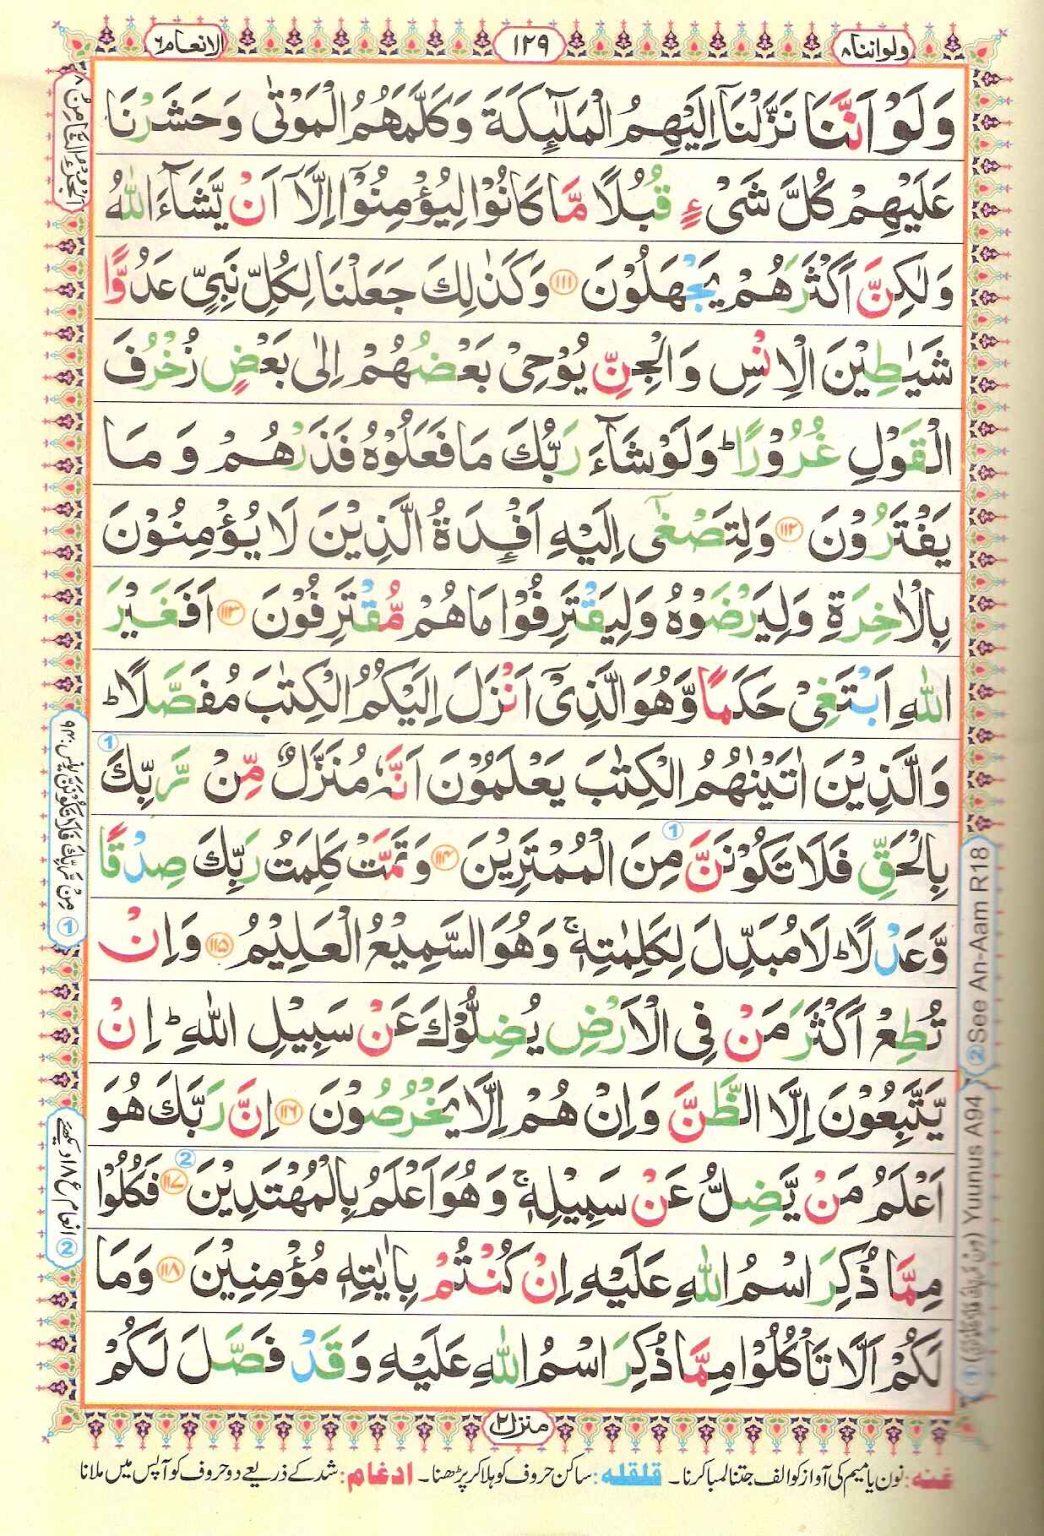 ولواننا۸
۱۲۹
الانعام۶
وَلَوْ اَنَّنَا نَزَّلْنَاۤ اِلَيْهِمُ الْمَلٰٓئِكَةَ وَكَلَّمَهُمُ الْمَوْتٰى وَحَشَرْنَا
عَلَيْهِمْ كُلَّ شَىْءٍ قُبُلًا مَّا كَانُوْا لِيُؤْمِنُوْۤا اِلَّاۤ اَنْ يَّشَآءَ اللّٰهُ
وَلٰكِنَّ اَكْثَرَهُمْ يَجْهَلُوْنَ ﴿۱۱۱﴾ وَكَذٰلِكَ جَعَلْنَا لِكُلِّ نَبِىٍّ عَدُوًّا
شَيٰطِيْنَ الْاِنْسِ وَالْجِنِّ يُوْحِىْ بَعْضُهُمْ اِلٰى بَعْضٍ زُخْرُفَ
الْقَوْلِ غُرُوْرًا ؕ وَلَوْ شَآءَ رَبُّكَ مَا فَعَلُوْهُ فَذَرْهُمْ وَمَا
يَفْتَرُوْنَ ﴿۱۱۲﴾ وَلِتَصْغٰۤى اِلَيْهِ اَفْـِٕدَةُ الَّذِيْنَ لَا يُؤْمِنُوْنَ
بِالْاٰخِرَةِ وَلِيَرْضَوْهُ وَلِيَقْتَرِفُوْا مَا هُمْ مُّقْتَرِفُوْنَ ﴿۱۱۳﴾ اَفَغَيْرَ
اللّٰهِ اَبْتَغِىْ حَكَمًا وَّهُوَ الَّذِىْۤ اَنْزَلَ اِلَيْكُمُ الْكِتٰبَ مُفَصَّلًا ؕ
وَالَّذِيْنَ اٰتَيْنٰهُمُ الْكِتٰبَ يَعْلَمُوْنَ اَنَّهٗ مُنَزَّلٌ مِّنْ رَّبِّكَ
بِالْحَقِّ فَلَا تَكُوْنَنَّ مِنَ الْمُمْتَرِيْنَ ﴿۱۱۴﴾ وَتَمَّتْ كَلِمَتُ رَبِّكَ صِدْقًا
وَّعَدْلًا ؕ لَا مُبَدِّلَ لِكَلِمٰتِهٖ ۚ وَهُوَ السَّمِيْعُ الْعَلِيْمُ ﴿۱۱۵﴾ وَاِنْ
تُطِعْ اَكْثَرَ مَنْ فِى الْاَرْضِ يُضِلُّوْكَ عَنْ سَبِيْلِ اللّٰهِ ؕ اِنْ
يَّتَّبِعُوْنَ اِلَّا الظَّنَّ وَاِنْ هُمْ اِلَّا يَخْرُصُوْنَ ﴿۱۱۶﴾ اِنَّ رَبَّكَ هُوَ
اَعْلَمُ مَنْ يَّضِلُّ عَنْ سَبِيْلِهٖ ۚ وَهُوَ اَعْلَمُ بِالْمُهْتَدِيْنَ ﴿۱۱۷﴾ فَكُلُوْا
مِمَّا ذُكِرَ اسْمُ اللّٰهِ عَلَيْهِ اِنْ كُنْتُمْ بِاٰيٰتِهٖ مُؤْمِنِيْنَ ﴿۱۱۸﴾ وَمَا
لَكُمْ اَلَّا تَاْكُلُوْا مِمَّا ذُكِرَ اسْمُ اللّٰهِ عَلَيْهِ وَقَدْ فَصَّلَ لَكُمْ
منزل۲
غنہ: نون یا میم کی آواز کو الف جتنا لمبا کرنا۔ قلقلہ: ساکن حروف کو ہلا کر پڑھنا۔ ادغام: شد کے ذریعے دو حروف کو آپس میں ملانا
اَلْجُزْءُ الثَّامِنُ ۸
② انعام ع۱۸ دیکھئے
Yuunus A94 ②See An-Aam R18